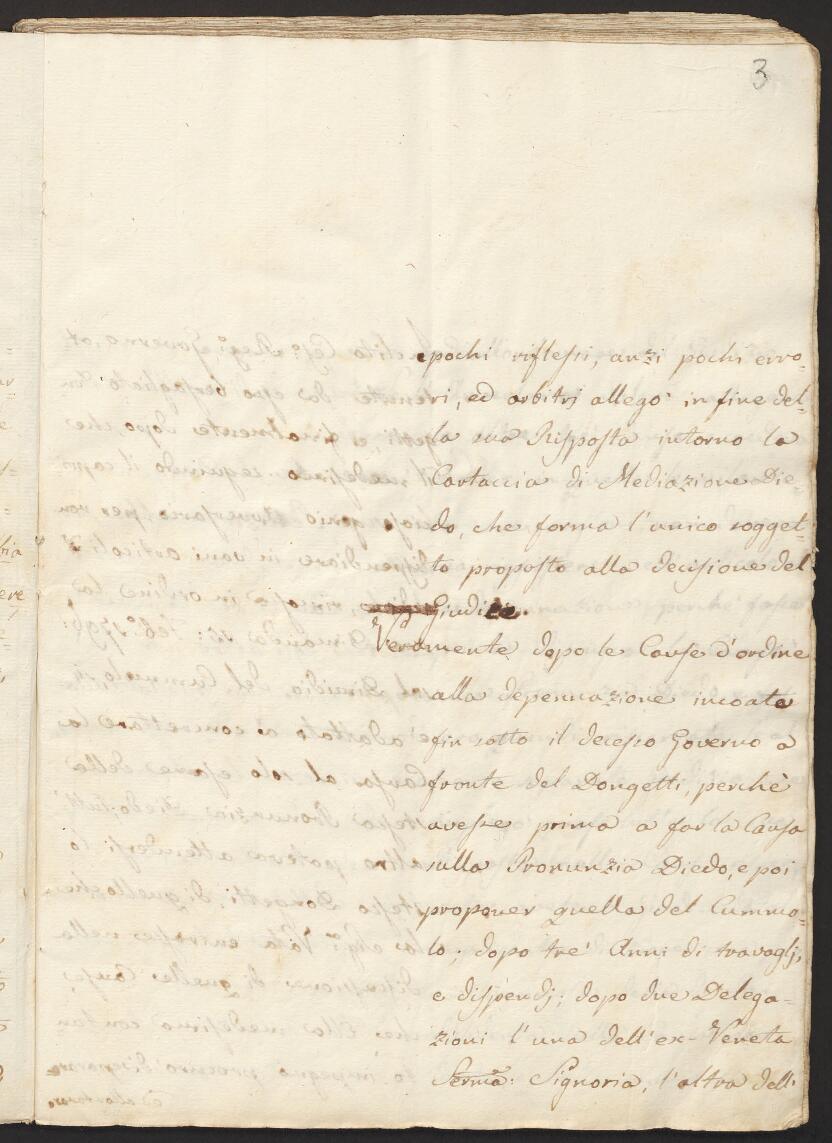 3
pochi riflessi, anzi pochi erro-
ri, ed arbitrj allegò in fine del-
la sua Risposta intorno la
Cartaccia di Mediazione Die-
do, che forma l'unico sogget-
to proposto alla decisione del
Giudice.
Veramente dopo le Cause d'ordine
alla depennazione incoate
fin sotto il decesso Governo a
fronte del Dongetti, perchè
avesse prima a far la Causa
sulla Pronunzia Diedo, e poi
proponer quella del Cummo-
lo; dopo trè Anni di travaglj,
e dispendj; dopo due Delega-
zioni l'una dell'ex-Veneta
Serma: Signoria, l'altra dell'